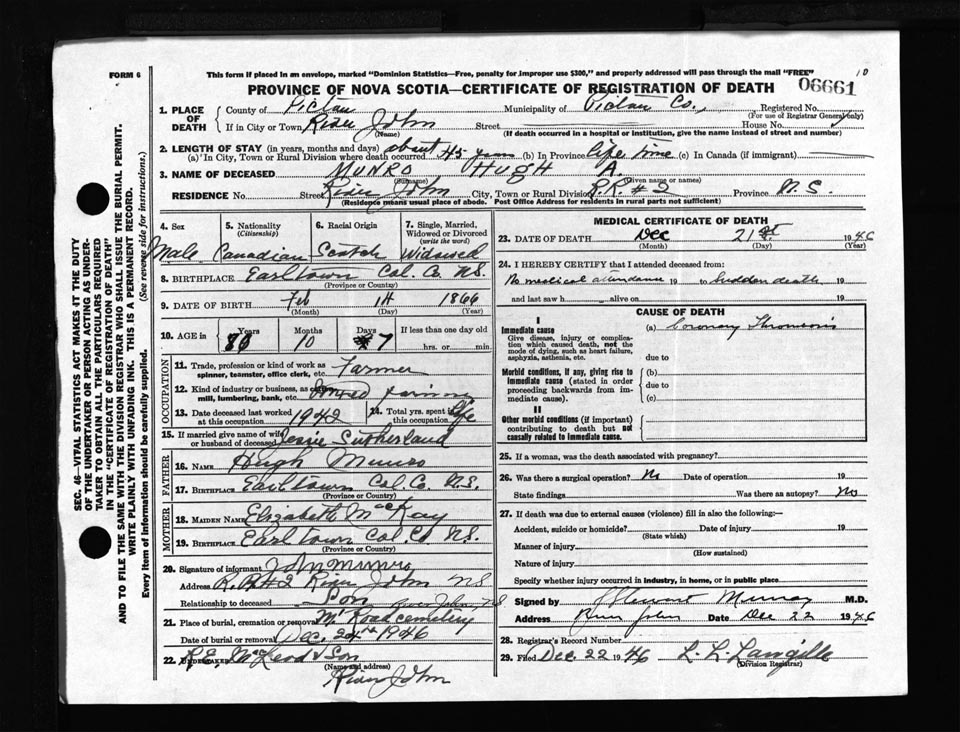 FORM 6
This form if placed in an envelope, marked "Dominion Statistics—Free, penalty for improper use $300," and properly addressed will pass through the mail "FREE"
10
06661
PROVINCE OF NOVA SCOTIA—CERTIFICATE OF REGISTRATION OF DEATH
1. PLACE OF DEATH
County of Pictou Municipality of Pictou Co., Registered No.
(For use of Registrar General only)
If in City or Town River John Street House No.
(Name) (If death occurred in a hospital or institution, give the name instead of street and number)
2. LENGTH OF STAY (in years, months and days)
(a) In City, Town or Rural Division where death occurred about 45 years (b) In Province life time (c) In Canada (if immigrant)
3. NAME OF DECEASED MUNRO HUGH A.
(Surname) (Given name or names)
RESIDENCE No. Street River John City, Town or Rural Division R.R. #2 Province N.S.
(Residence means usual place of abode. Post Office Address for residents in rural parts not sufficient)
4. Sex
Male
5. Nationality
(Citizenship)
Canadian
6. Racial Origin
Scotch
7. Single, Married, Widowed or Divorced
(write the word)
Widowed
8. BIRTHPLACE Earltown Col. Co. N.S.
(Province or Country)
9. DATE OF BIRTH Feb 14 1866
(Month) (Day) (Year)
10. AGE in Years Months Days If less than one day old
80 10 7 hrs. or min.
OCCUPATION
11. Trade, profession or kind of work as spinner, teamster, office clerk, etc. Farmer
12. Kind of industry or business, as cotton mill, lumbering, bank, etc. farming
13. Date deceased last worked at this occupation 1942
14. Total yrs. spent in this occupation life
15. If married give name of wife or husband of deceased Jessie Sutherland
FATHER
16. NAME Hugh Munro
17. BIRTHPLACE Earltown Col. Co. N.S.
(Province or Country)
MOTHER
18. MAIDEN NAME Elizabeth MacKay
19. BIRTHPLACE Earltown Col. Co. N.S.
(Province or Country)
20. Signature of informant John Munro
Address R.R. #2 River John N.S.
Relationship to deceased Son
River John, N.S.
21. Place of burial, cremation or removal Mt Road cemetery
Date of burial or removal Dec. 24th 1946
22. UNDERTAKER R.E. MacLeod & Son
(Name and address)
River John
MEDICAL CERTIFICATE OF DEATH
23. DATE OF DEATH Dec 21st 1946
(Month) (Day) (Year)
24. I HEREBY CERTIFY that I attended deceased from:
No medical attendance 19 to Sudden death 19
and last saw h alive on 19
CAUSE OF DEATH
I
Immediate cause
Give disease, injury or complication which caused death, not the mode of dying, such as heart failure, asphyxia, asthenia, etc.
(a) Coronary Thrombosis
due to
Morbid conditions, if any, giving rise to immediate cause (stated in order proceeding backwards from immediate cause).
(b)
due to
(c)
II
Other morbid conditions (if important) contributing to death but not causally related to immediate cause.
25. If a woman, was the death associated with pregnancy?
26. Was there a surgical operation? No Date of operation 19
State findings Was there an autopsy? No
27. If death was due to external causes (violence) fill in also the following:—
Accident, suicide or homicide? Date of injury 19
(State which)
Manner of injury
(How sustained)
Nature of injury
Specify whether injury occurred in industry, in home, or in public place
Signed by J Stewart Murray M.D.
Address River John Date Dec 22 1946
28. Registrar's Record Number
29. Filed Dec 22 1946 L. L. Langille
(Division Registrar)
SEC. 46—VITAL STATISTICS ACT MAKES IT THE DUTY
OF THE UNDERTAKER OR PERSON ACTING AS UNDER-
TAKER TO OBTAIN ALL THE PARTICULARS REQUIRED
IN THE "CERTIFICATE OF REGISTRATION OF DEATH"
AND TO FILE THE SAME WITH THE DIVISION REGISTRAR WHO SHALL ISSUE THE BURIAL PERMIT.
WRITE PLAINLY WITH UNFADING INK. THIS IS A PERMANENT RECORD.
Every item of information should be carefully supplied. (See reverse side for instructions.)